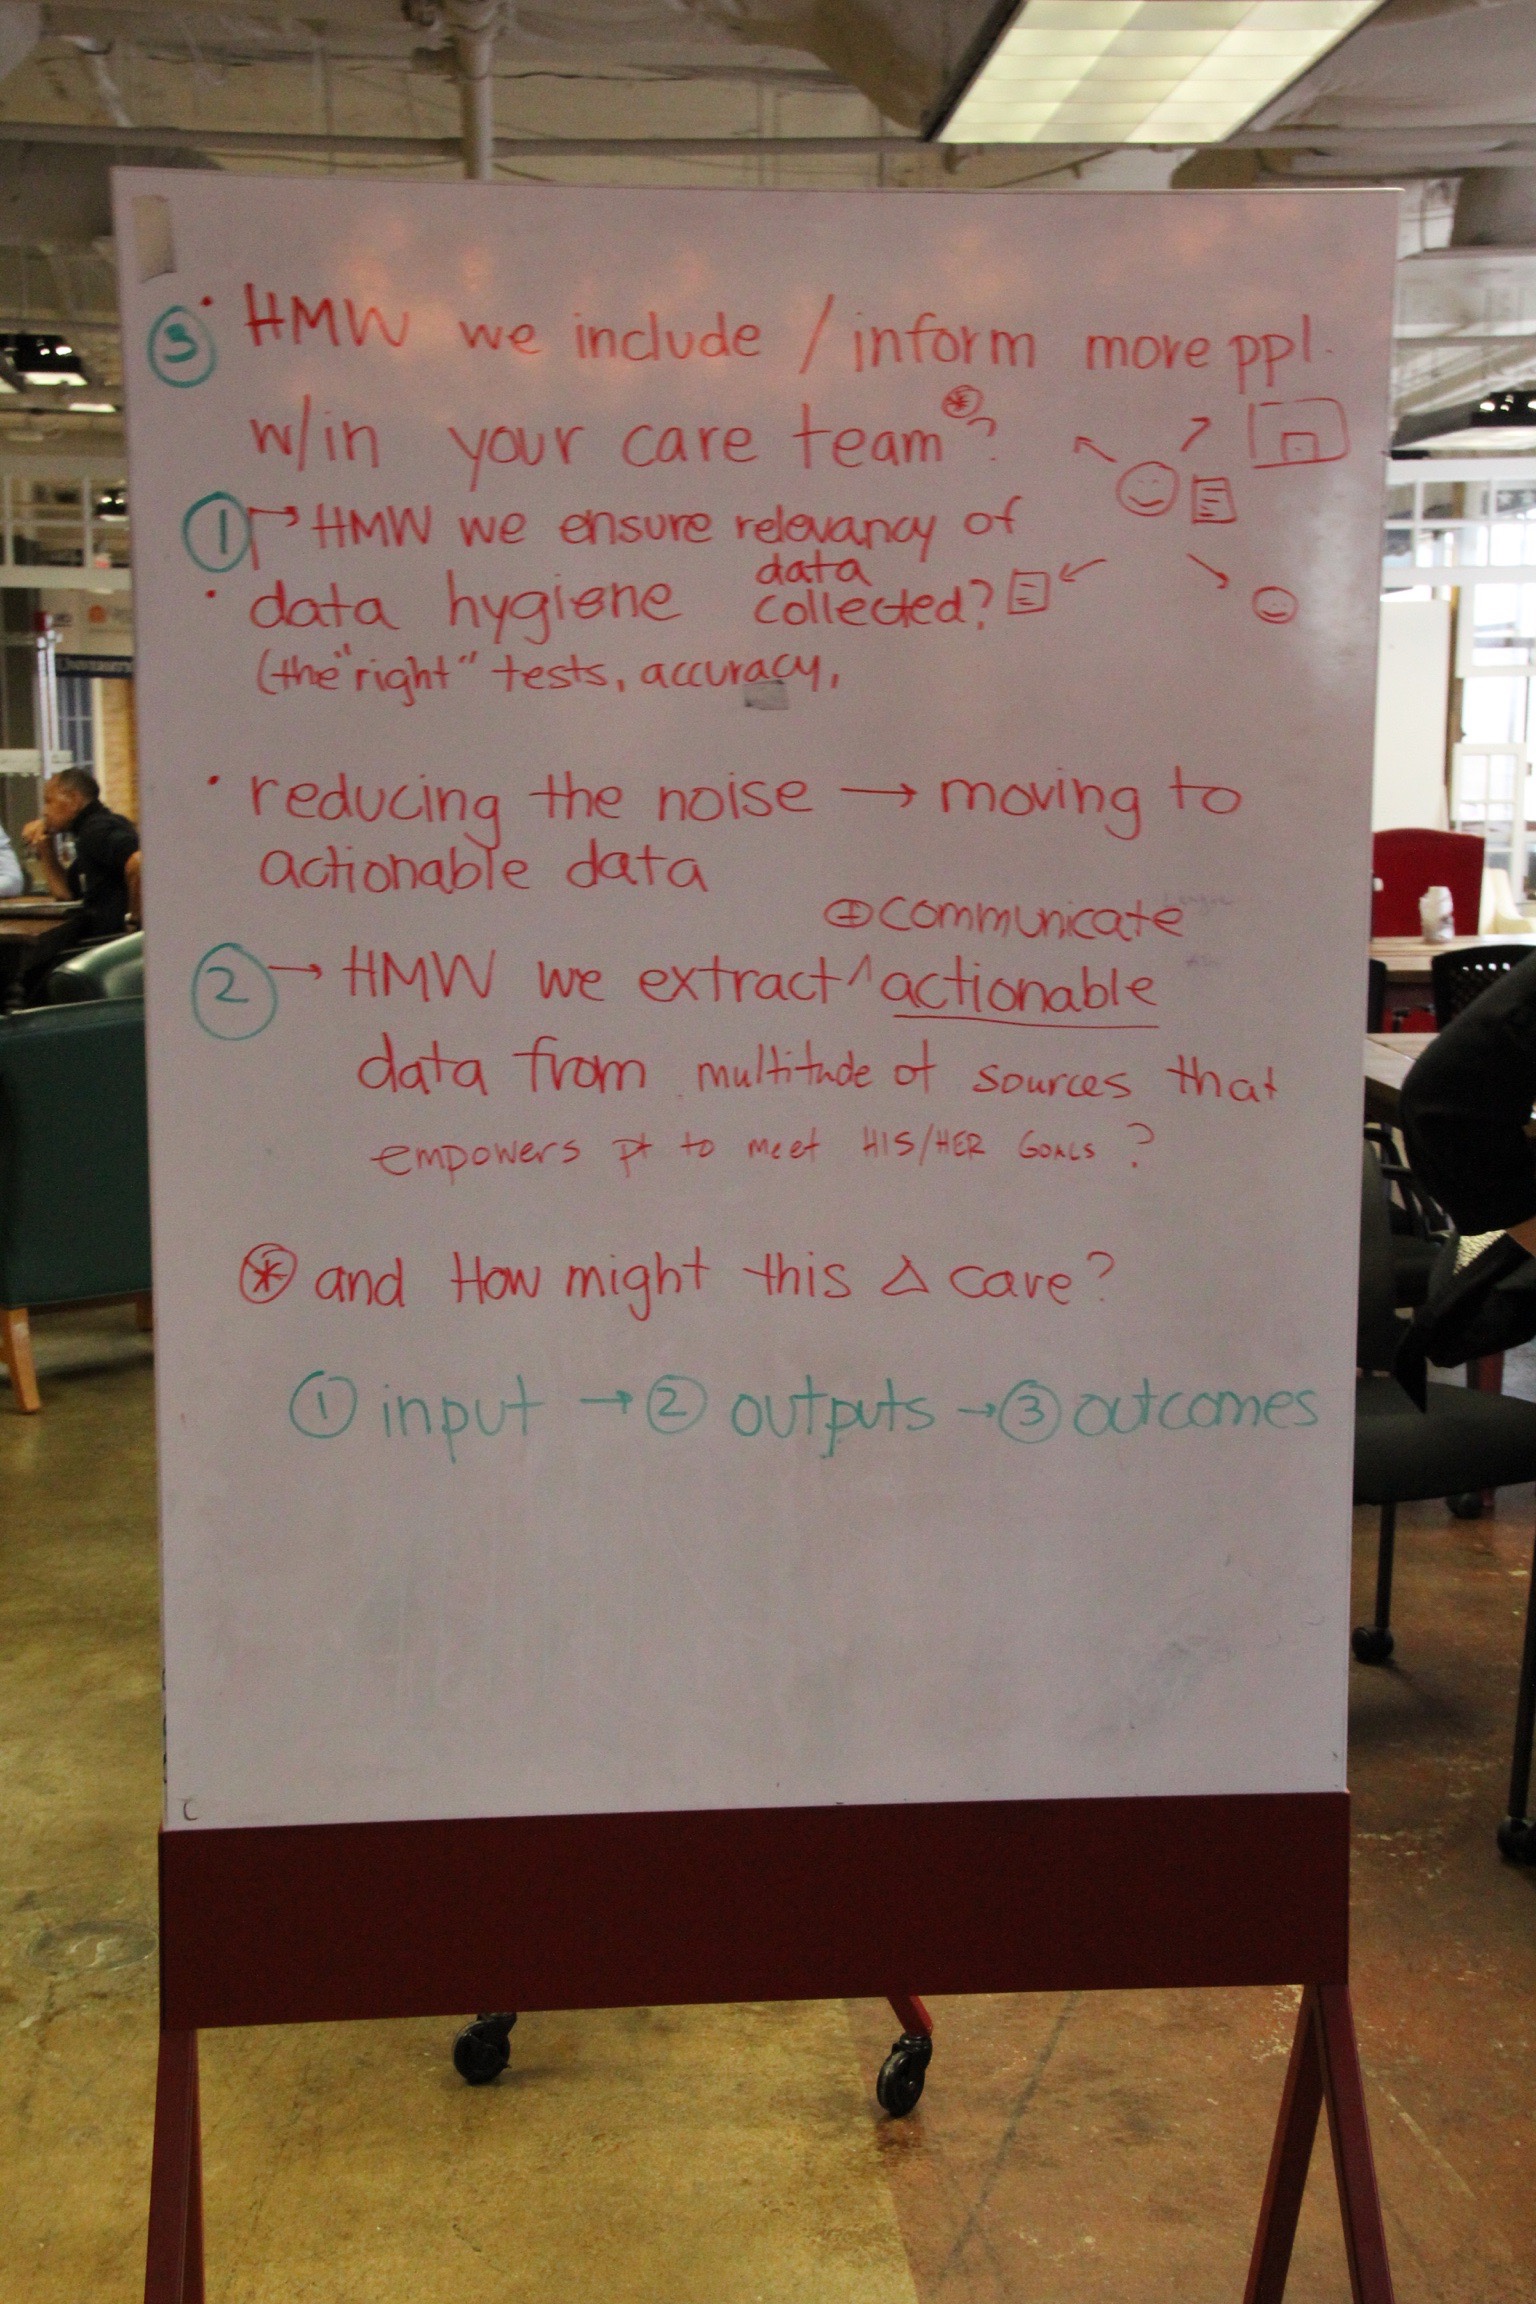 ③ • HMW we include / inform more ppl
w/in your care team ⊛?
① → HMW we ensure relevancy of
data
• data hygiene collected?
(the "right" tests, accuracy,
• reducing the noise → moving to
actionable data
⊕ communicate
② → HMW we extract ^ actionable
data from multitude of sources that
empowers pt to meet HIS/HER GOALS?
⊛ and How might this Δ care?
① input → ② outputs → ③ outcomes